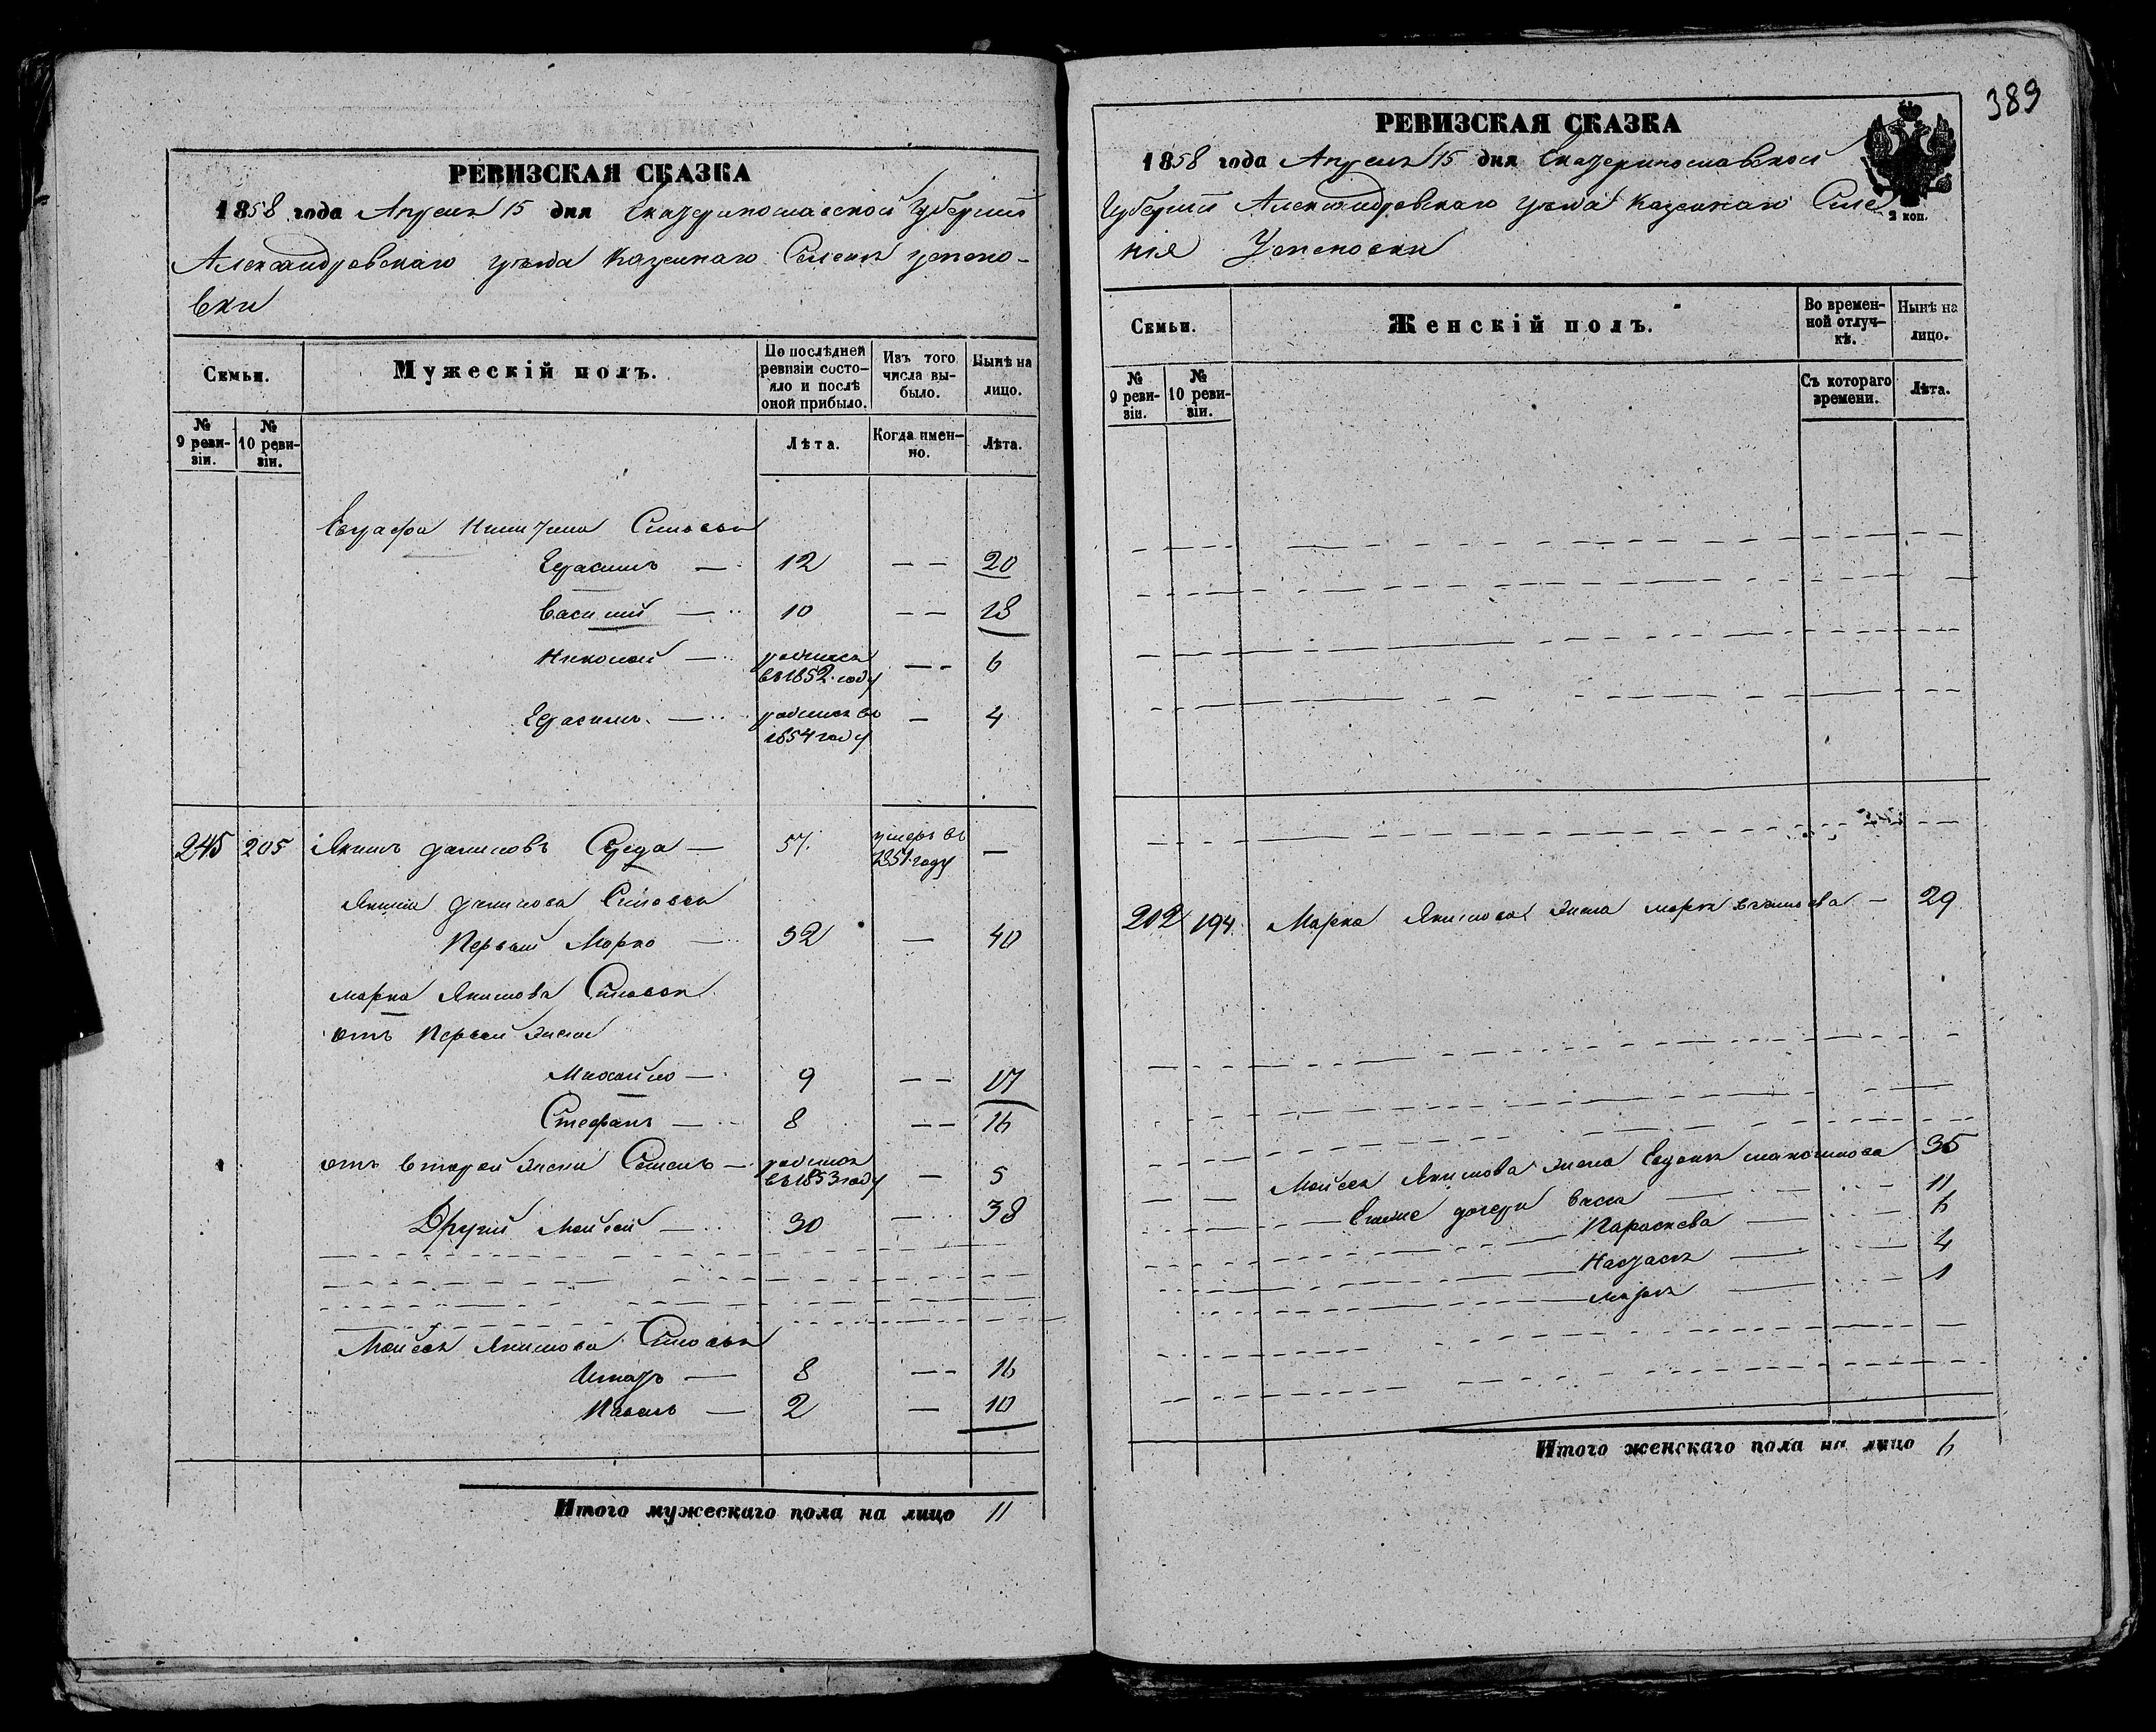 РЕВИЗСКАЯ СКАЗКА
1858 года Апреля 15 дня Екатеринославской Губернии
Александровскаго уѣзда Казеннаго Селенія Успено-
вки
Семьи.
Мужескій полъ.
По послѣдней ревизіи состояло и послѣ оной прибыло.
Изъ того числа выбыло.
Нынѣ на лицо.
№ 9 ревизіи.
№ 10 ревизіи.
Лѣта.
Когда именно.
Лѣта.
Никитина Сыновья
Герасимъ — 12 — — 20
Василий — 10 — — 18
Николай — родился въ 1852 году — — 6
Герасимъ — родился въ 1854 году — 4
245 205 Якимъ Даниловъ Середа — 57 умеръ въ 1851 году —
Якима Данилова Сыновья
Первый Марко — 32 — 40
Марка Якимова Сыновья
отъ Первой жены
Михайло — 9 — — 17
Стефанъ — 8 — — 16
отъ второй жены Семенъ — родился въ 1853 году — 5
Другий Мойсей — 30 — 38
Мойсея Якимова Сыновья
Игнатъ — 8 — — 16
Павелъ — 2 — 10
Итого мужескаго пола на лицо 11
389
РЕВИЗСКАЯ СКАЗКА
1858 года Апреля 15 дня Екатеринославской
Губерніи Александровскаго уѣзда Казеннаго Селе
нія Успеновки
2 коп.
Семьи.
Женскій полъ.
Во временной отлучкѣ.
Нынѣ на лицо.
№ 9 ревизіи.
№ 10 ревизіи.
Съ котораго времени.
Лѣта.
202 194 Марка Якимова жена Марья — 29
Мойсея Якимова жена Евдокія 35
дочери Васса — 11
Параскева — 6
Настасья — 4
Марья — 1
Итого женскаго пола на лицо 6